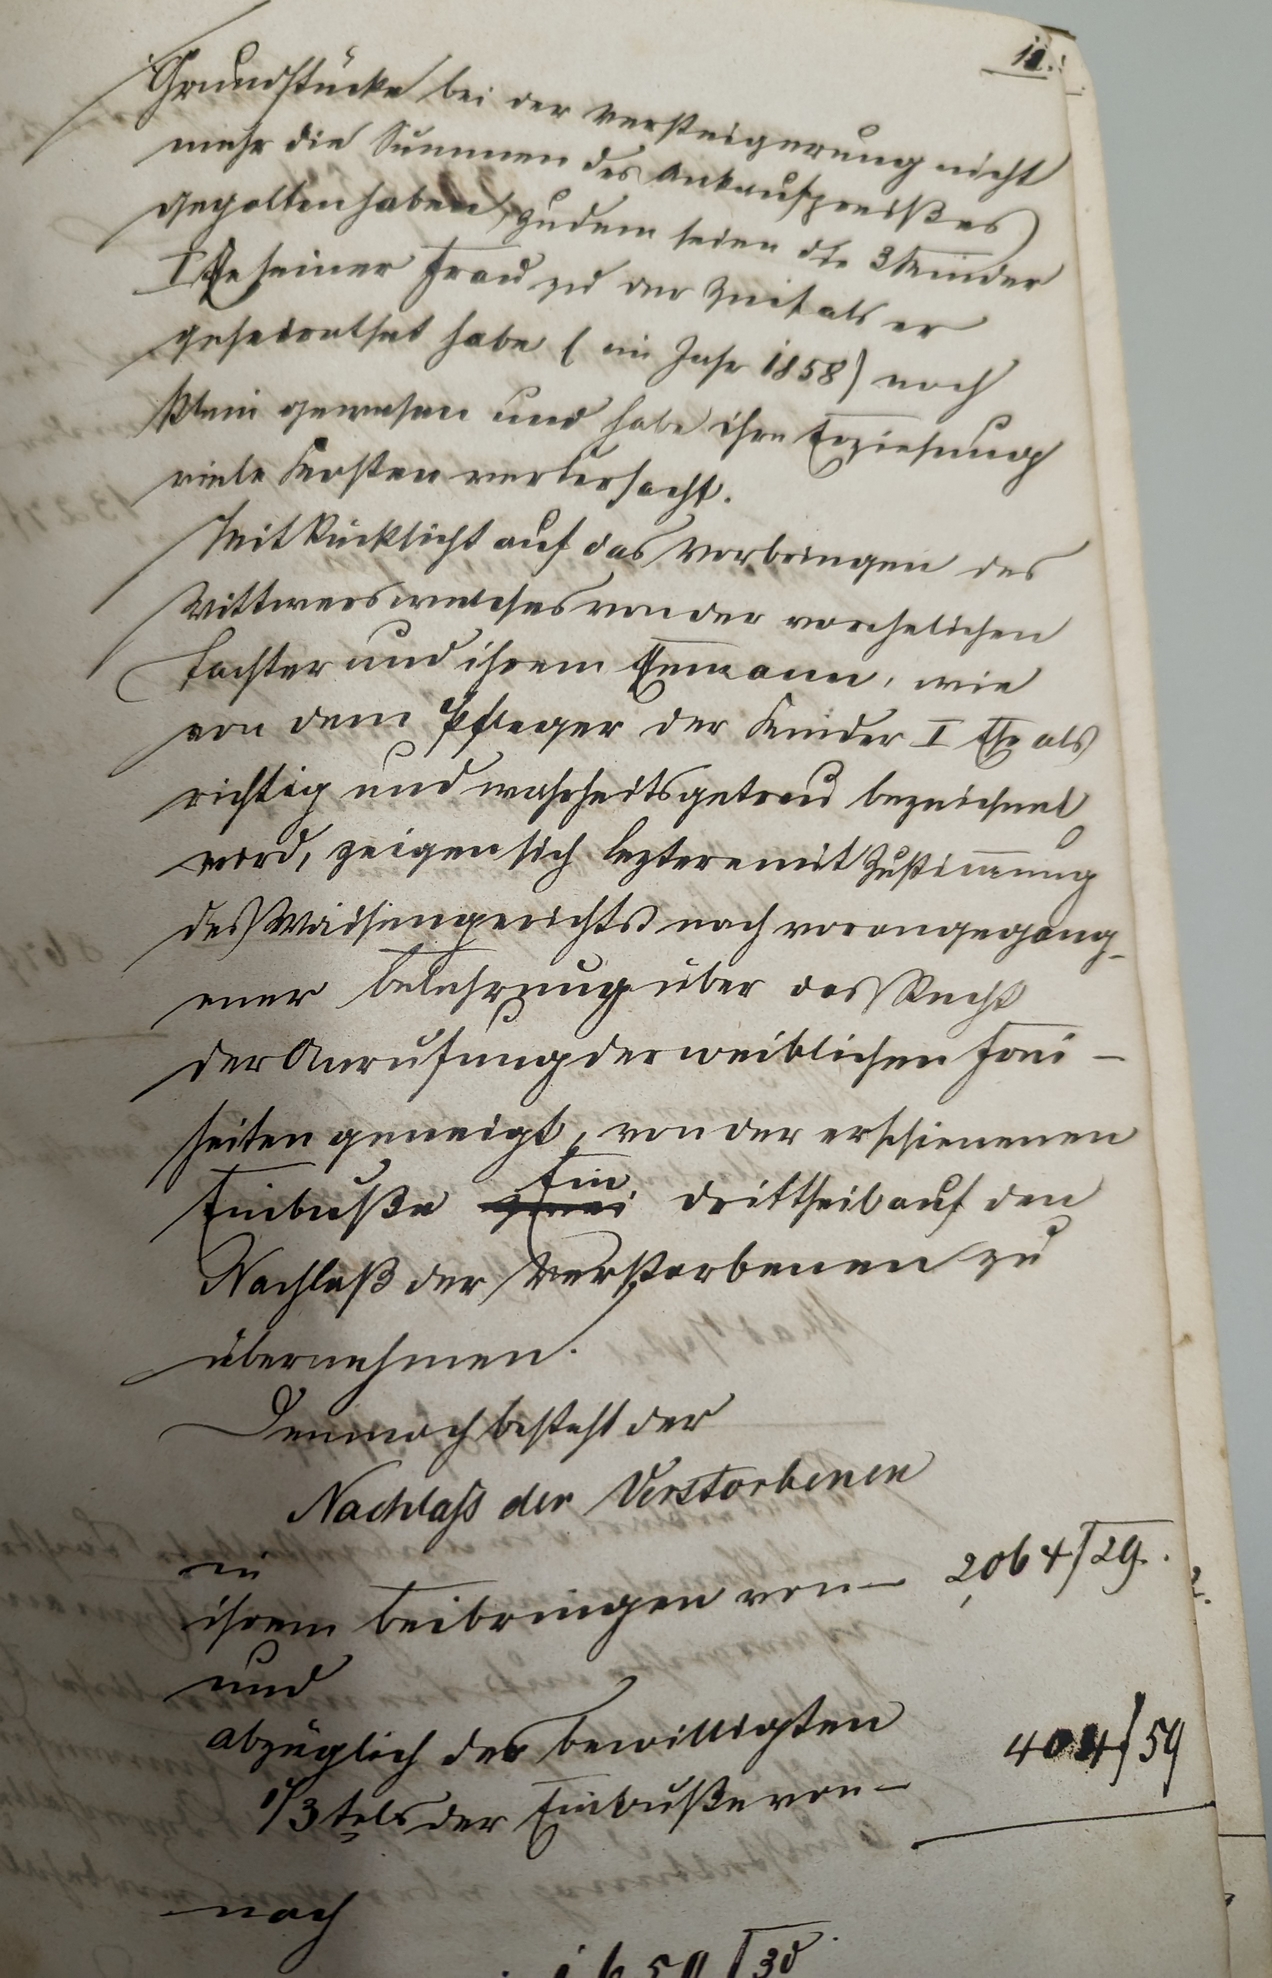 11.
Grundstücke bei der Versteigerung nicht
mehr die Summen des Ankaufspreißes
gegolten haben, zudem seien die 3 Kinder
I Ehe seiner Frau zu der Zeit als er
geheirathet habe (im Jahr 1858) noch
klein gewesen und habe ihre Erziehung
viele Kosten verursacht.
Mit Rücksicht auf das Vorbringen des
Wittwers welches von der vorehelichen
Tochter und ihrem Ehemann, wie
von dem Pfleger der Kinder I Ehe als
richtig und wahrheitsgetreu bezeichnet
wird, zeigen sich leztere mit Zustimmung
des Waisengerichts nach vorangegang-
ener Belehrung über das Recht
der Anrufung der weiblichen Frei-
heiten geneigt, von der erschienenen
Ein
Einbuße zwei Drittheil auf den
Nachlaß der Verstorbenen zu
übernehmen.
Demnach besteht der
Nachlass der Verstorbenen
in
ihrem Beibringen von – 2,064 f 29.
und
abzüglich des bewilligten
1/3tels der Einbuße von – 404 f 59
nach